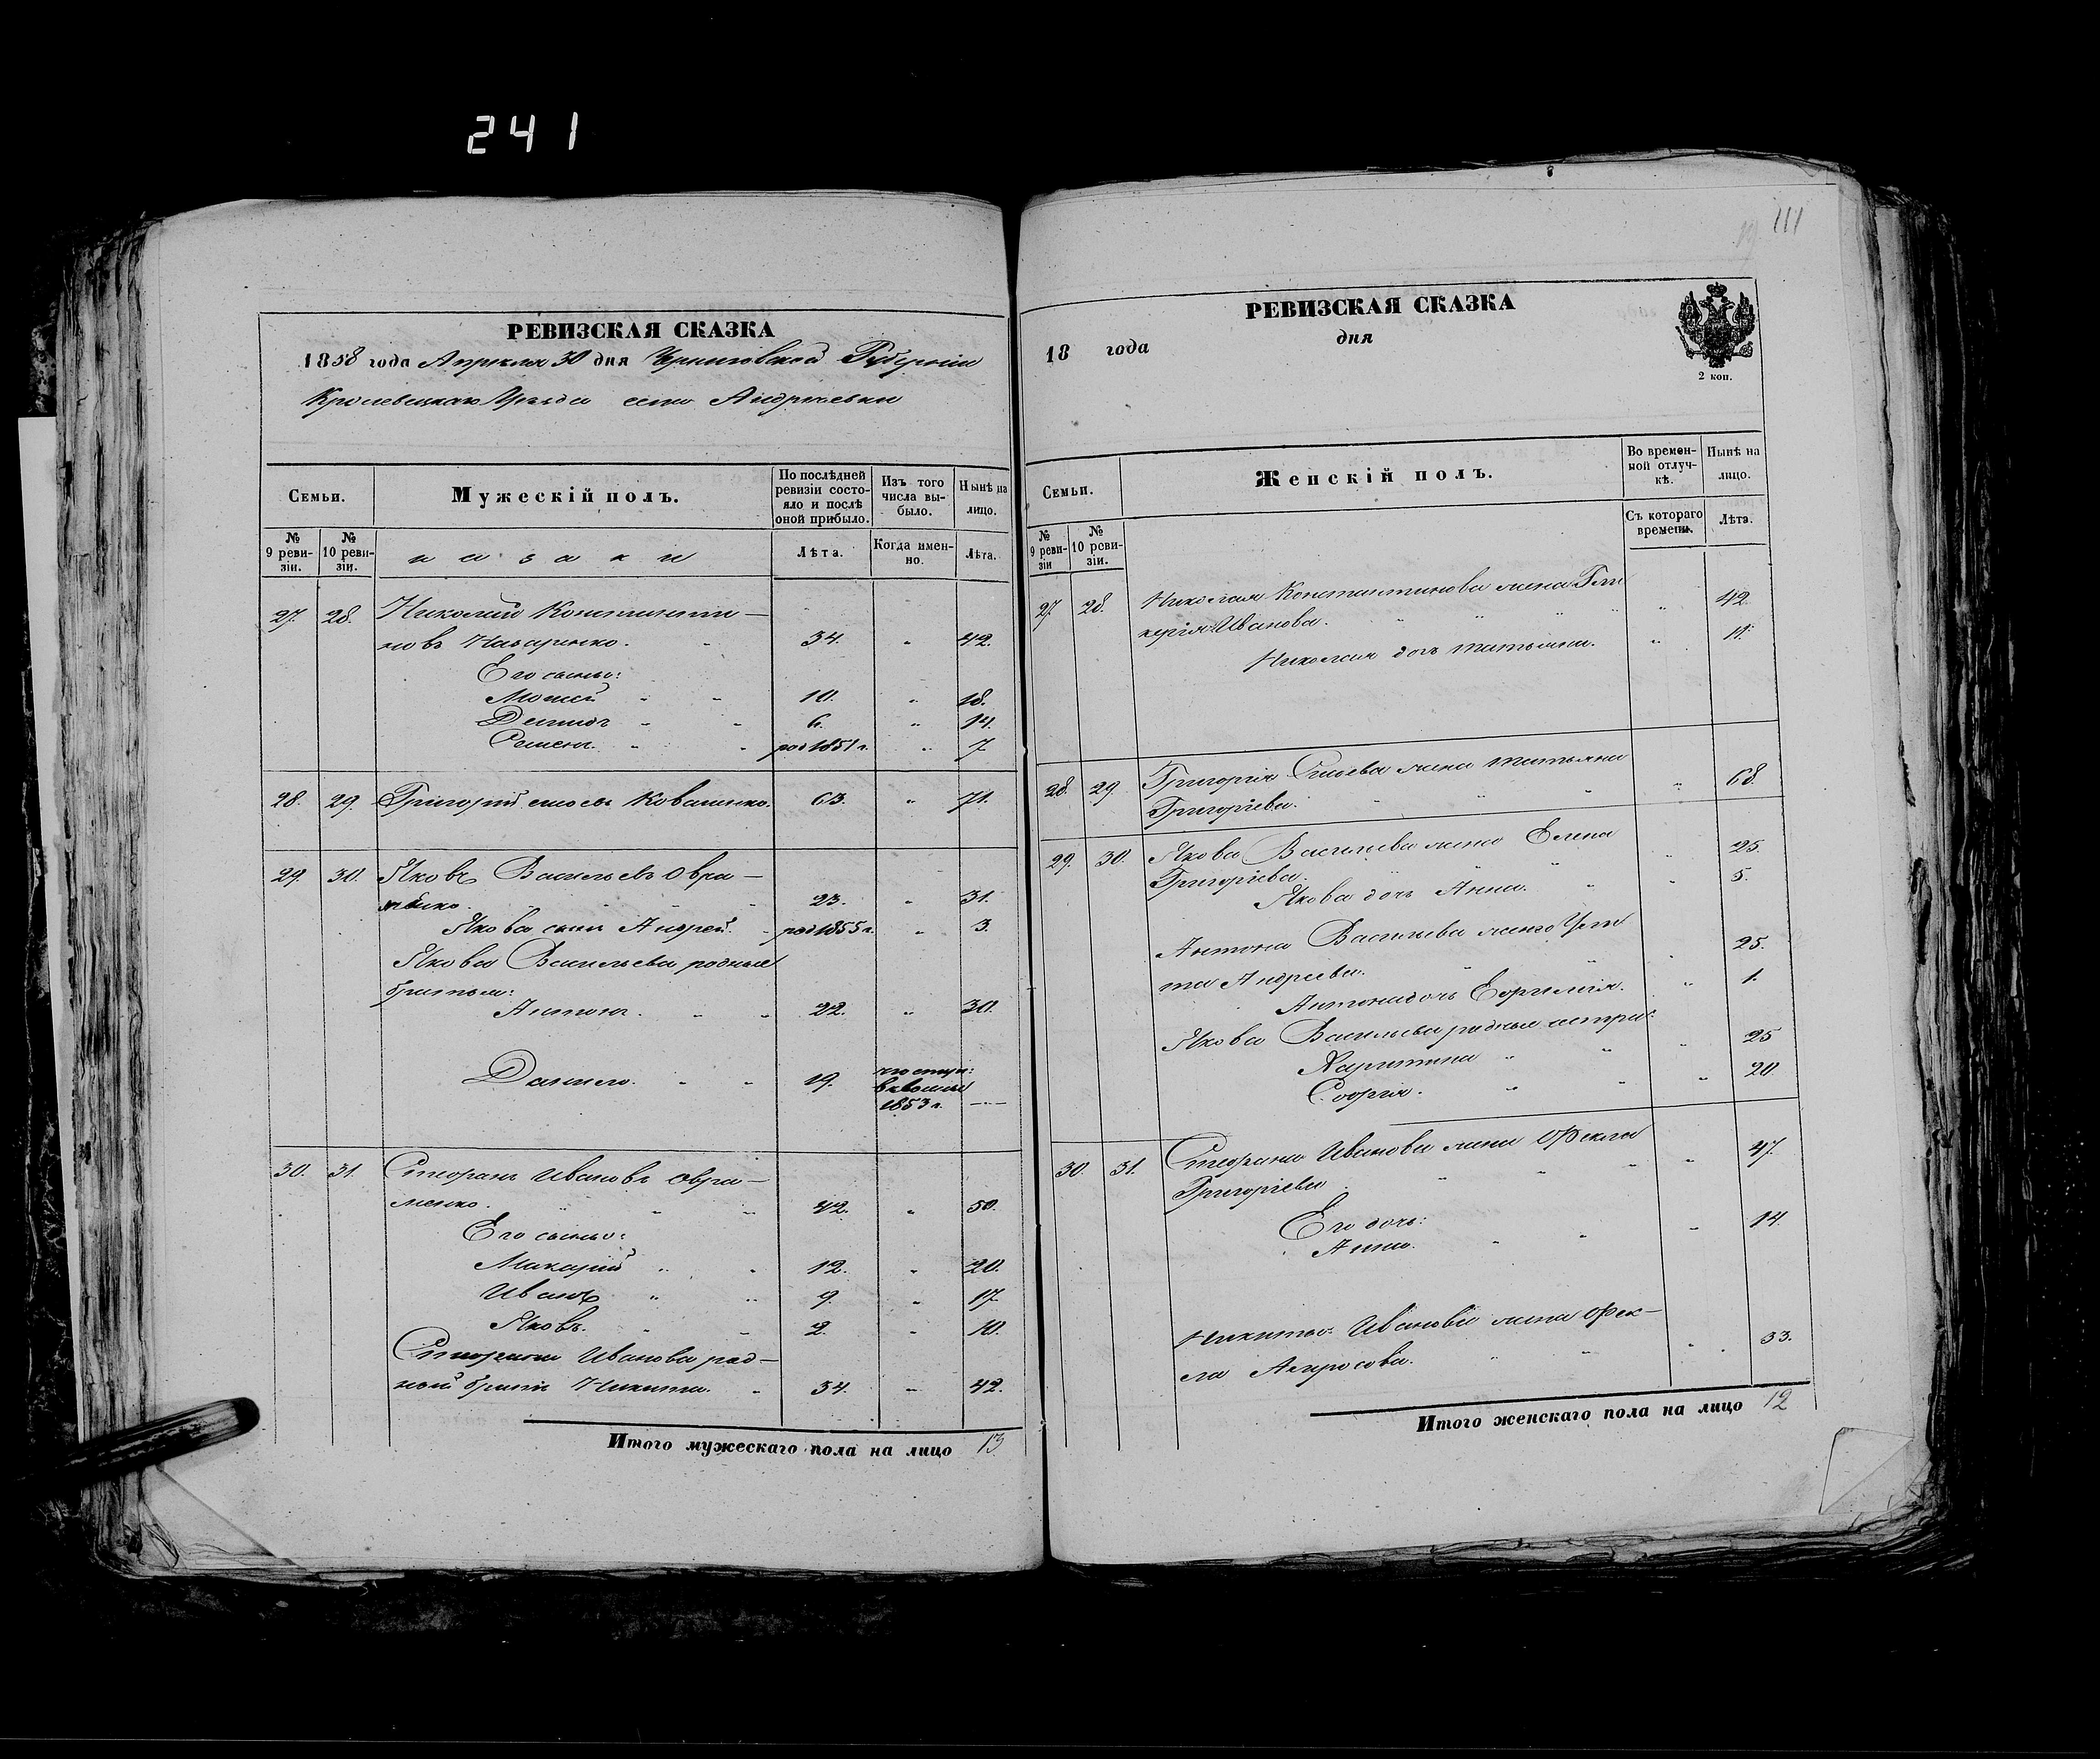 241
РЕВИЗСКАЯ СКАЗКА
1858 года Апреля 30 дня Черниговской Губерніи
Кролевецкаго Уезда села Андреевки
Семьи.
Мужескій полъ.
По послѣдней ревизіи состояло и послѣ оной прибыло.
Изъ того числа выбыло.
Нынѣ на лицо.
№ 9 ревизіи.
№ 10 ревизіи.
казаки
Лѣта.
Когда именно.
Лѣта.
27. 28. Николай Константи-
новъ Назаренко. 34. " 42.
Его сыны:
Мойсей 10. " 18.
Демидъ 6. " 14.
Семенъ. род 1851 г. " 7.
28. 29. Григорий Коваленко. 63. " 71.
29. 30. Яковъ Васильевъ Овра-
менко. 23. " 31.
Якова сынъ Андрей. род 1855 г. " 3.
Якова Васильева родные
братья:
Антонъ. 22. " 30.
Данило. 19.
1853 г. —
30. 31. Стефанъ Ивановъ Овра-
менко. 42. " 50.
Его сыны:
Макарій 12. " 20.
Иванъ 9. " 17.
Яковъ. 2. " 10.
Стефана Иванова род-
ной братъ Никита. 34. " 42.
Итого мужескаго пола на лицо 13
111
РЕВИЗСКАЯ СКАЗКА
18 года дня
2 коп.
Семьи.
Женскій полъ.
Во временной отлучкѣ.
Нынѣ на лицо.
№ 9 ревизіи
№ 10 ревизіи.
Съ котораго времени.
Лѣта.
27. 28. Николая Константинова жена Гли
керія Иванова. " 42.
Николая дочь Татьяна. " 11.
28. 29 Григорія жена Татьяна
Григоріева. " 68.
29. 30. Якова Васильева жена Елена
Григоріева. 25.
Якова дочь Анна. 5.
Антона Васильева жена Ули
та Андреева. 25.
Антона дочь 1.
Якова Васильева родные сестры:
Харитина 25
Софія. 20
30. 31. Стефана Иванова жена Фекла
Григоріева " 47.
Его дочь:
Анна. " 14.
Никиты Иванова жена Фек-
ла 33.
Итого женскаго пола на лицо 12